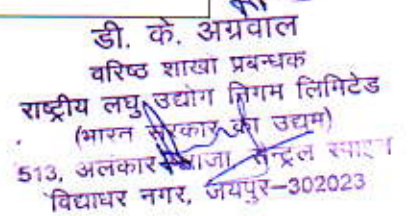 डी. के. अग्रवाल
वरिष्ठ शाखा प्रबन्धक
राष्ट्रीय लघु उद्योग निगम लिमिटेड
(भारत सरकार का उद्यम)
513, अलंकार प्लाजा, सैन्ट्रल स्पाईन
विद्याधर नगर, जयपुर–302023